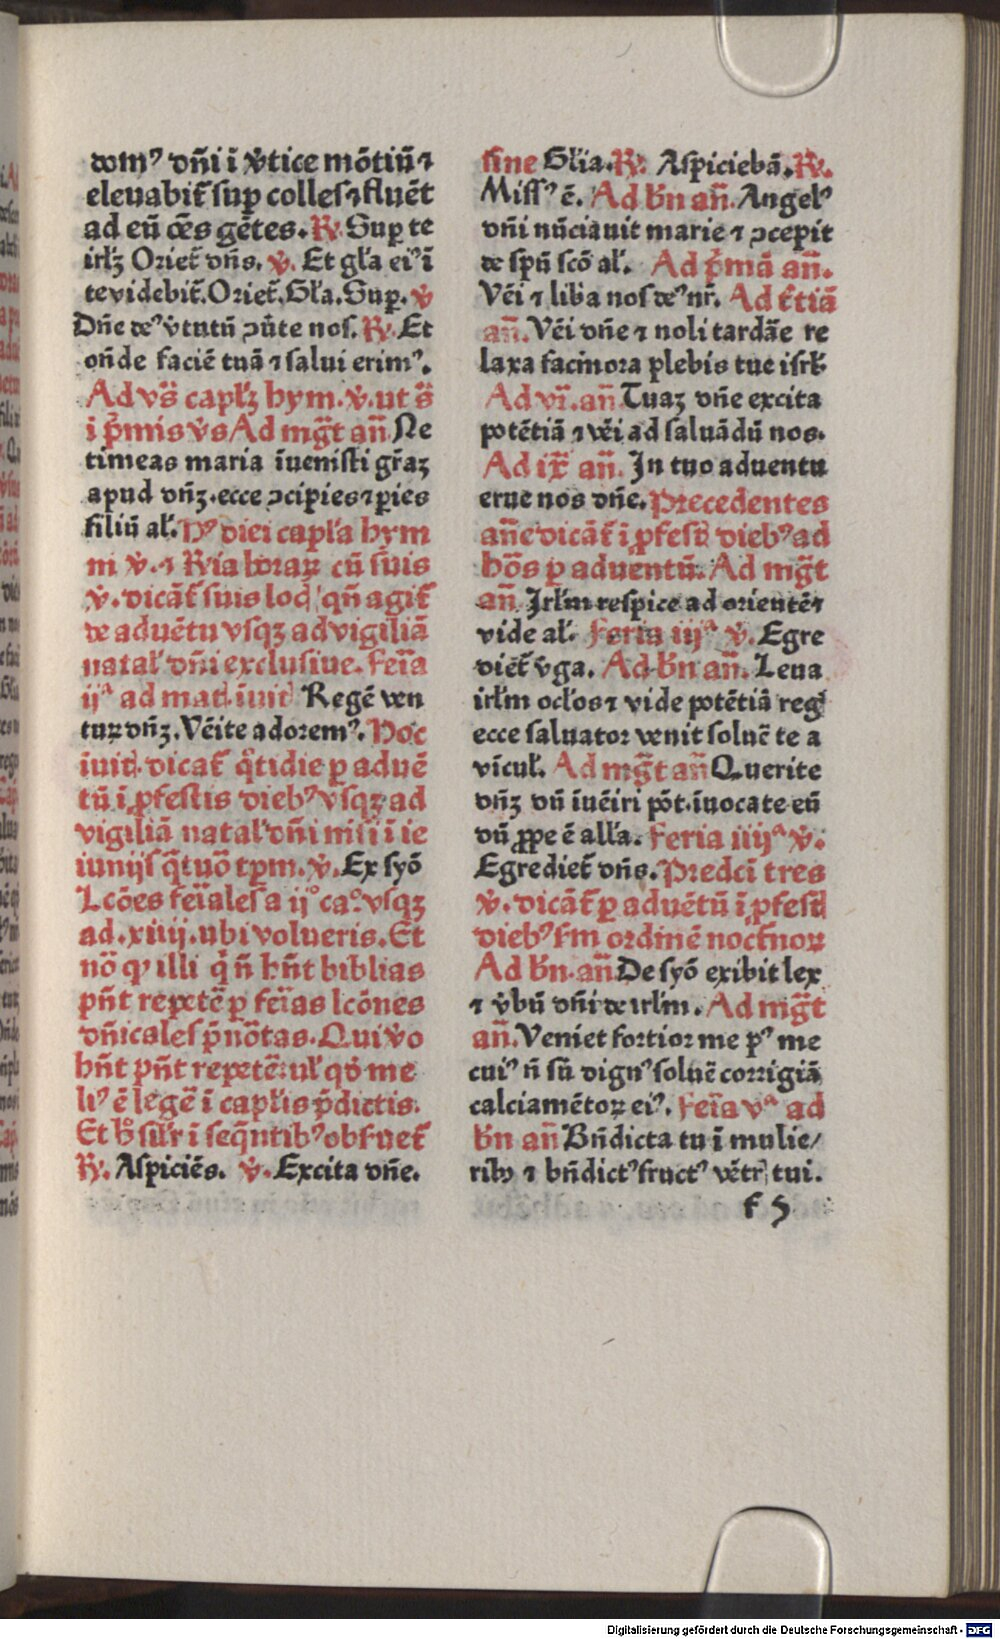 domꝰ dñi ĩ v̾tice mõtiũ ⁊
eleuabit̃ suꝑ colles ⁊ fluẽt
ad eũ oẽs gẽtes. R̷. Suꝑ te
irłꝫ Oriet̃ dñs. v̾. Et gła eiꝰ ĩ
te videbit̃. Oriet̃. Gła. Suꝑ. v̾
Dñe deꝰ v̾tutũ ꝯũte nos. R̷. Et
oñde faciẽ tuã ⁊ salui erimꝰ.
Ad vs̃s capłꝫ hym. v̾. ut s̃
i p̃mis v̾s Ad mg̃t añ Ne
timeas maria ĩuenisti gr̃aꝫ
apud dñꝫ. ecce ꝯcipies ⁊ ꝑies
filiũ ał. Hꝰ diei capła hym
ni v̾. ⁊ R̷ia horaꝝ cũ suis
v̾. dicãt̃ suis loc̃ qñ agit̃
de aduẽtu vsqꝫ ad vigiliã
natał dñi exclusiue. Feĩa
ijᵃ ad mat̃. ĩuit̃ Regẽ ven
tuꝝ dñꝫ. Vẽite adoremꝰ. Hoc
ĩuit̃. dicat̃ q̃tidie ꝑ aduẽ
tũ ĩ ꝓfestis diebꝰ vsqꝫ ad
vigiliã natał dñi nisi ĩ ie
iunijs q̃tuõ tꝑm. v̾. Ex syõ
Lcões feĩales a ijᵒ caᵒ. vsqꝫ
ad. xiiij. ubi volueris. Et
nõ qꝰ illi q̃ ñ hñt biblias
pñt repetẽ ꝑ feĩas lcõnes
dñicales p̃nõtas. Qui v̾o
hñt pñt repetẽ: uł qđ me
liꝰ ẽ legẽ ĩ capłis p̃dictis.
Et ħ siłr ĩ seq̃ntibꝰ obsuet̃
R̷. Aspiciẽs. v̾. Excita dñe.
sine Głia. R̷. Aspiciebã. R̷.
Missꝰ ẽ. Ad bñ añ. Angelꝰ
dñi nũciauit marie ⁊ ꝯcepit
de spũ scõ ał. Ad p̃mã añ.
Vẽi ⁊ lib̾a nos deꝰ nr̃. Ad t̃tiã
añ. Vẽi dñe ⁊ noli tardãe re
laxa facinora plebis tue isrł.
Ad vĩ. añ. Tuaꝫ dñe excita
potẽtiã ⁊ vẽi ad saluãdũ nos.
Ad ix̃ añ. In tuo aduentu
erue nos dñe. Precedentes
añe dicãt̃ ĩ ꝓfest̃ diebꝰ ad
hõs ꝑ aduentũ. Ad mg̃t
añ. Jrłm respice ad orientẽ ⁊
vide ał. Feria iijᵃ v̾. Egre
diẽt̃ v̾ga. Ad bñ añ. Leua
irłm ocłos ⁊ vide potẽtiã reg̃
ecce saluator venit soluẽ te a
vĩcuł. Ad mg̃t añ Querite
dñꝫ dũ ĩuẽiri põt. ĩuocate eũ
dũ ꝓpe ẽ ałła. Feria iiijᵃ v̾.
Egrediet̃ dñs. Predcĩ tres
v̾. dicãt̃ ꝑ aduẽtũ ĩ ꝓfest̃
diebꝰ sm ordinẽ noct̃noꝝ
Ad bñ. añ. De syõ exibit lex
⁊ v̾bũ dñi de irłm. Ad mg̃t
añ. Veniet fortior me pꝰ me
cuiꝰ ñ sũ dignꝰ soluẽ corrigiã
calciamẽtoꝝ eiꝰ. Feĩa vᵃ ad
bñ añ Bñdicta tu ĩ mulie/
ribꝫ ⁊ bñdictꝰ fructꝰ vẽtr̃ tui.
f 5
Digitalisierung gefördert durch die Deutsche Forschungsgemeinschaft - DFG